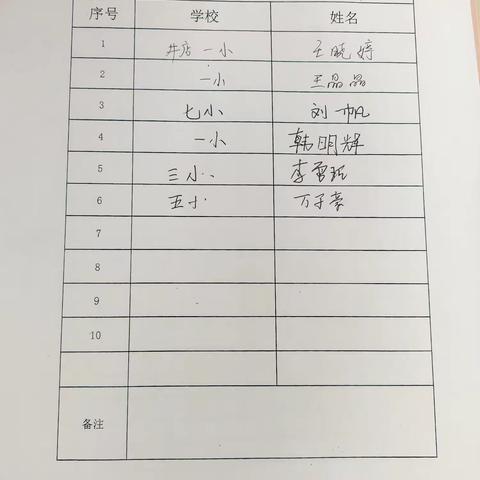 序号 学校 姓名
1 井店一小 王晓婷
2 一小 王晶晶
3 七小 刘一帆
4 一小 韩明辉
5 三小 李
6 五小 万子豪
7
8
9
10
备注